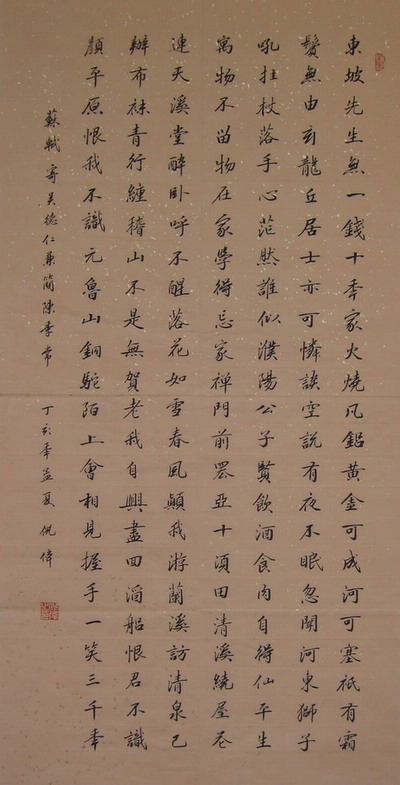 東坡先生無一錢十年家火燒凡鉛黃金可成河可塞祇有霜
鬢無由玄龍丘居士亦可憐談空說有夜不眠忽聞河東獅子
吼拄杖落手心茫然誰似濮陽公子賢飲酒食肉自得仙平生
寓物不留物在家學得忘家禪門前罷亞十頃田清溪繞屋花
連天溪堂醉卧呼不醒落花如雪春風顛我游蘭溪訪清泉已
辦布袜青行纏稽山不是無賀老我自興盡回酒船恨君不識
顏平原恨我不識元魯山銅駝陌上會相見握手一笑三千年
蘇軾寄吴德仁兼簡陳季常 丁亥年孟夏 倪偉